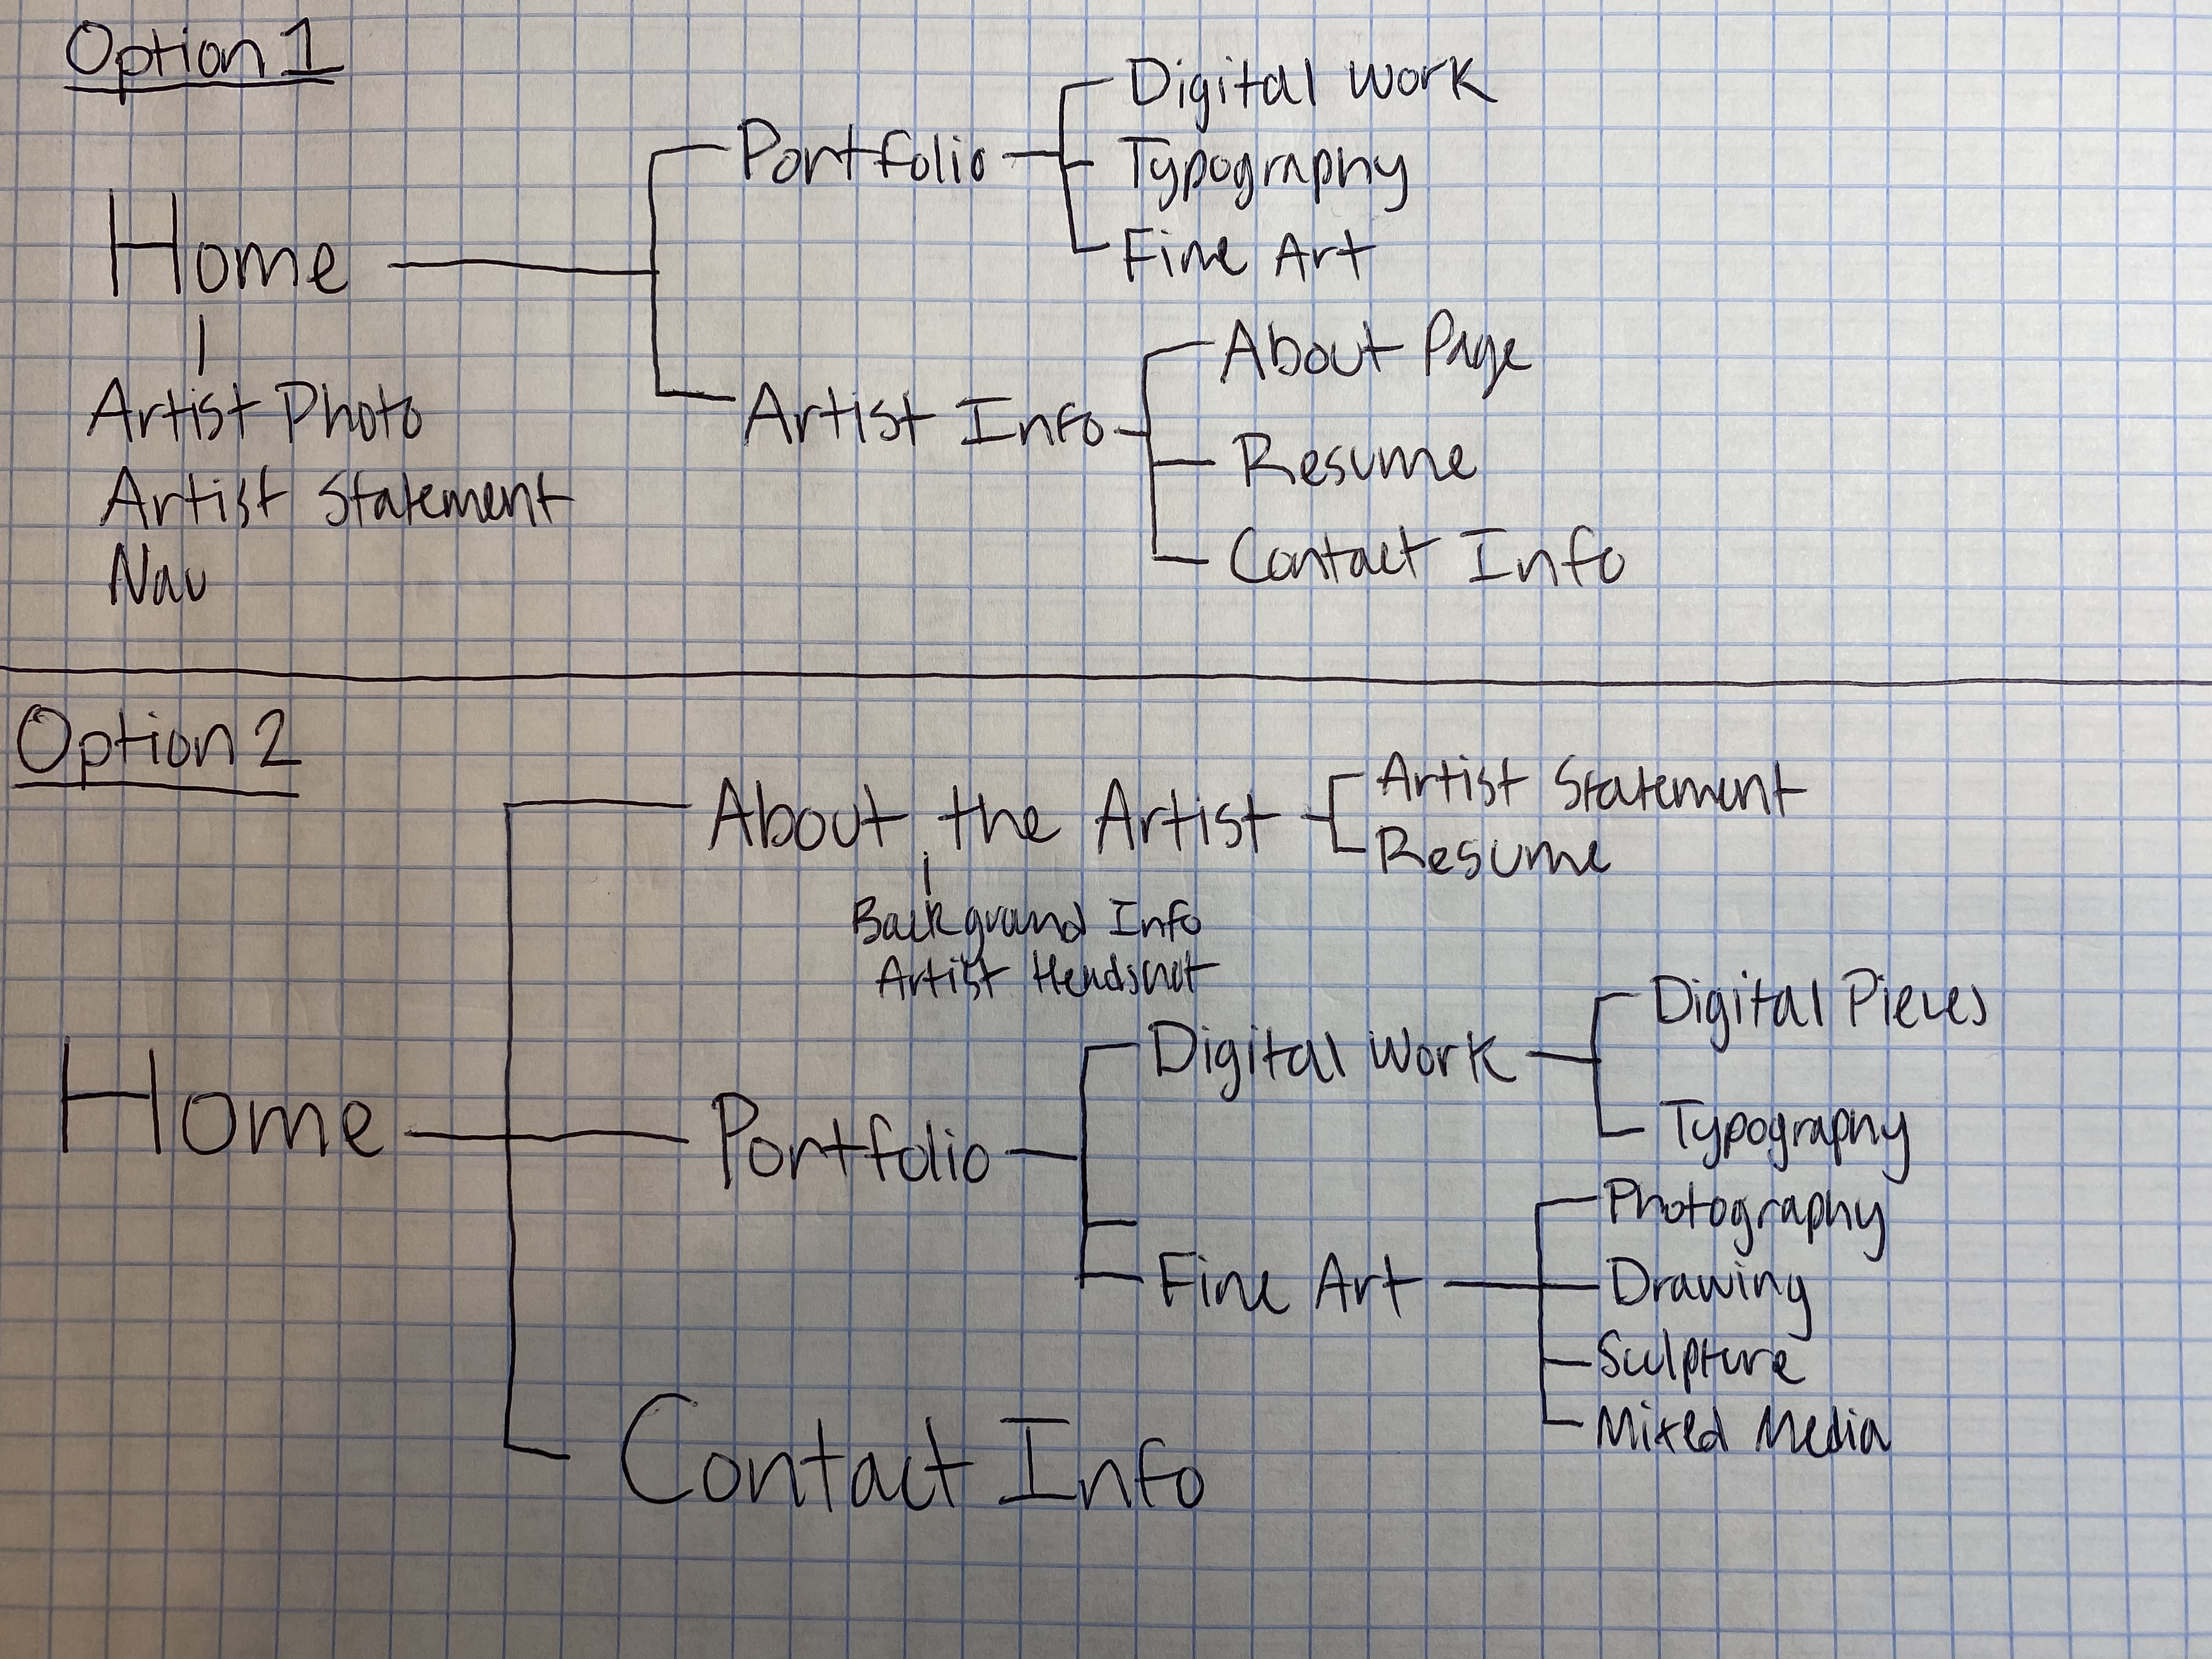 Option 1
Home
Artist Photo
Artist Statement
Nav
Portfolio
Digital Work
Typography
Fine Art
Artist Info
About Page
Resume
Contact Info
Option 2
Home
About the Artist
Background Info
Artist Headshot
Artist Statement
Resume
Portfolio
Digital Work
Digital Pieces
Typography
Fine Art
Photography
Drawing
Sculpture
Mixed Media
Contact Info